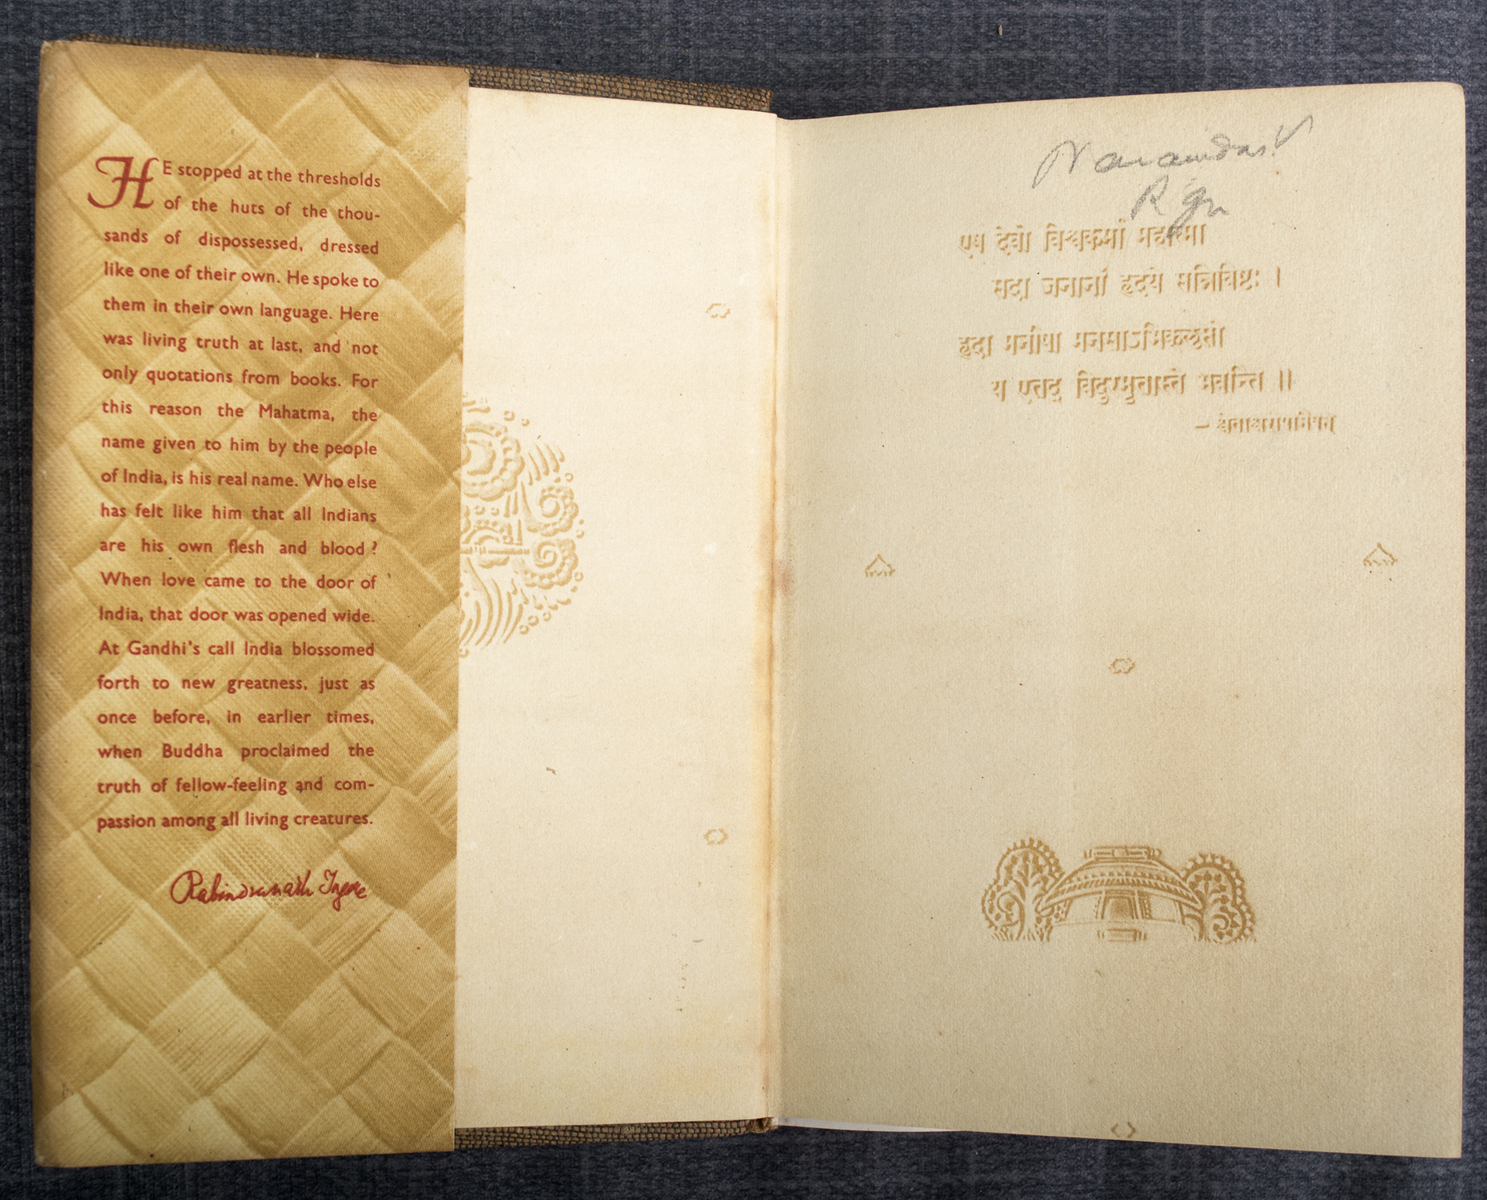 HE stopped at the thresholds
of the huts of the thou-
sands of dispossessed, dressed
like one of their own. He spoke to
them in their own language. Here
was living truth at last, and not
only quotations from books. For
this reason the Mahatma, the
name given to him by the people
of India, is his real name. Who else
has felt like him that all Indians
are his own flesh and blood ?
When love came to the door of
India, that door was opened wide.
At Gandhi's call India blossomed
forth to new greatness, just as
once before, in earlier times,
when Buddha proclaimed the
truth of fellow-feeling and com-
passion among all living creatures.
Rabindranath Tagore
एष देवो विश्वकर्मा महात्मा
सदा जनानां हृदये सन्निविष्टः ।
हृदा मनीषा मनसाभिक्लृप्तो
य एतद् विदुरमृतास्ते भवन्ति ॥